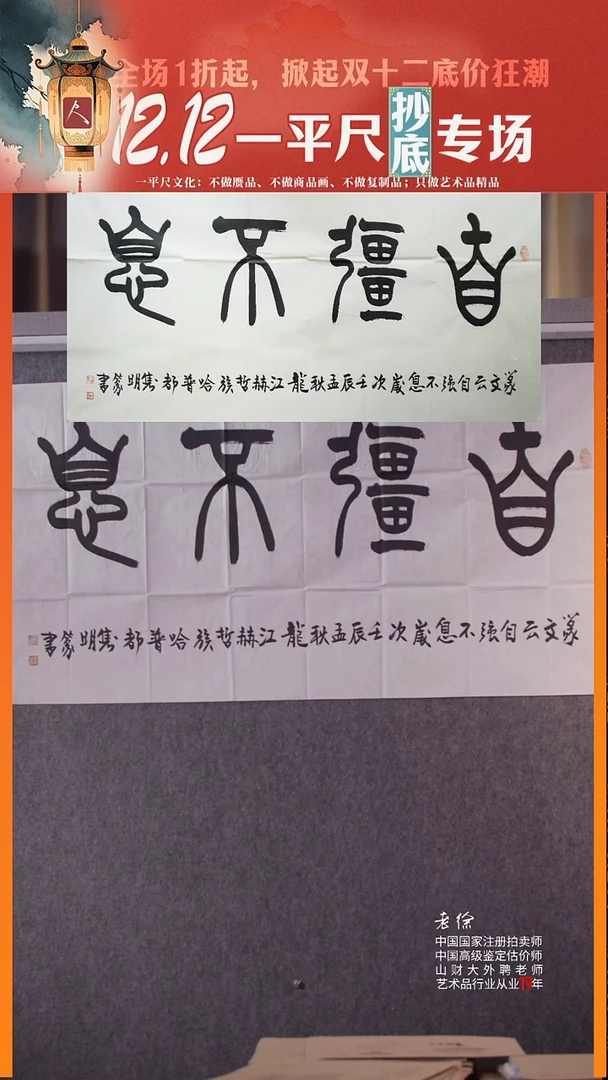 全场1折起，掀起双十二底价狂潮
12.12一平尺抄底专场
一平尺文化：不做赝品、不做商品画、不做复制品；只做艺术品精品
自彊不息
文云自强不息歲次壬辰孟秋龍江赫哲族哈普都隽明篆書
自彊不息
文云自强不息歲次壬辰孟秋龍江赫哲族哈普都隽明篆書
老徐
中国国家注册拍卖师
中国高级鉴定估价师
山财大外聘老师
艺术品行业从业19年